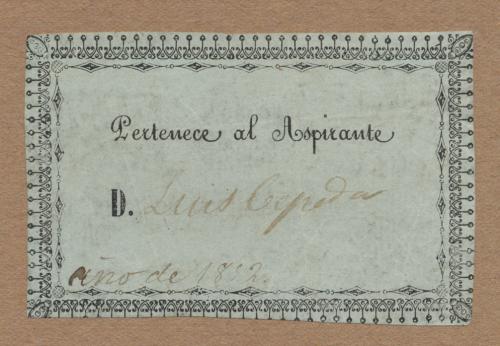 Pertenece al Aspirante
D. Luis Cepeda
año de